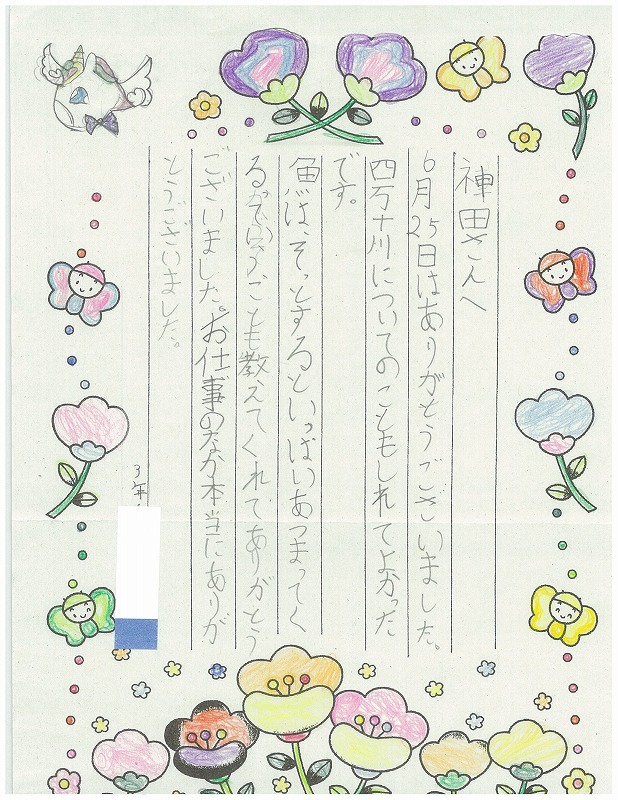 神田さんへ
6月25日はありがとうございました。
四万十川についてのこともしれてよかった
です。
魚は、そっとするといっぱいあつまってく
るがいうことも教えてくれてありがとう
ございました。お仕事のなか本当にありが
とうございました。
3年